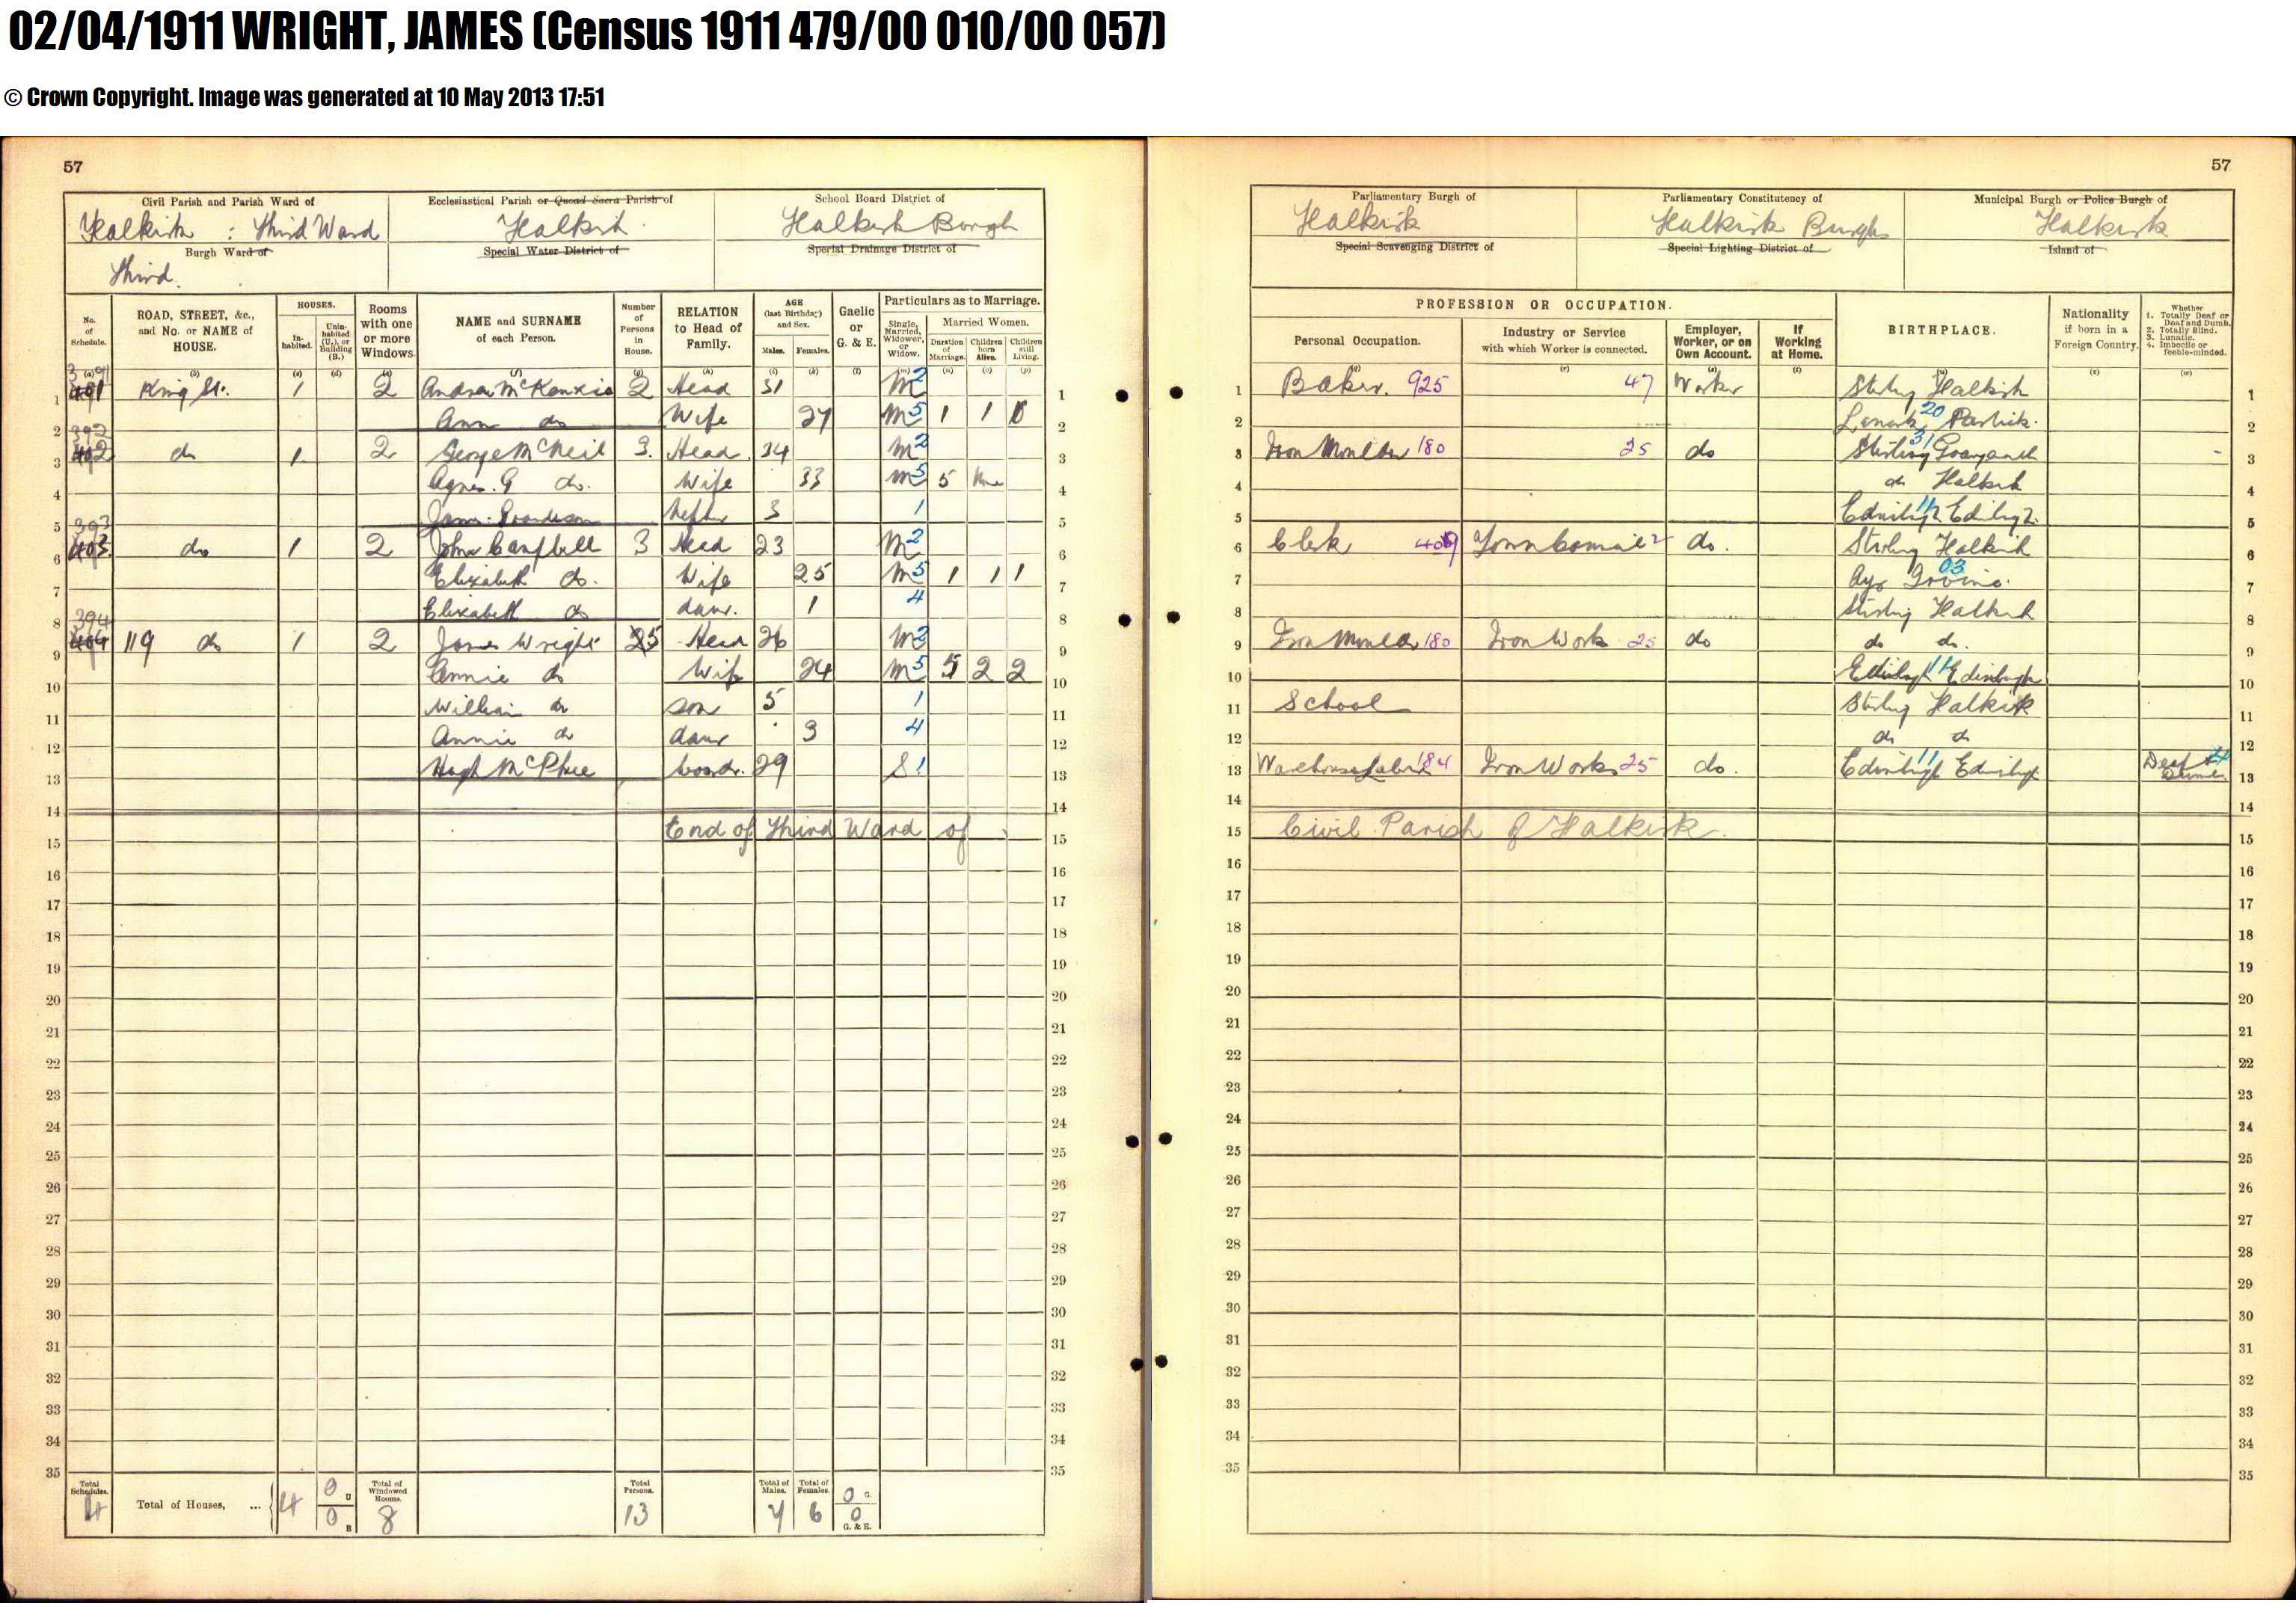 02/04/1911 WRIGHT, JAMES (Census 1911 479/00 010/00 057)
© Crown Copyright. Image was generated at 10 May 2013 17:51
57
Civil Parish and Parish Ward of
Falkirk : Third Ward
Burgh Ward of
Third.
Ecclesiastical Parish or Quoad Sacra Parish of
Falkirk
Special Water District of
School Board District of
Falkirk Burgh
Special Drainage District of
No. of Schedule.
ROAD, STREET, &c., and No. or NAME of HOUSE.
HOUSES.
In-habited.
Unin-habited (U.), or Building (B.)
Rooms with one or more Windows
NAME and SURNAME of each Person.
Number of Persons in House.
RELATION to Head of Family.
AGE (last Birthday) and Sex.
Males. Females.
Gaelic or G. & E.
Particulars as to Marriage.
Single, Married, Widower, or Widow.
Married Women.
Duration of Marriage.
Children born Alive.
Children still Living.
1 391 401 King St. 1 2 Andrew McKenzie 2 Head 31 M 2 1
2 Ann do Wife 27 M 5 1 1 0 2
3 392 402 do 1 2 George McNeil 3 Head 34 M 2 3
4 Agnes G do. Wife 33 M 5 5 4
5 Nephew 3 1 5
6 393 403 do 1 2 John Campbell 3 Head 23 M 2 6
7 Elizabeth do. Wife 25 M 5 1 1 1 7
8 Elizabeth do daur. 1 4 8
9 394 404 119 do 1 2 James Wright 5 Head 26 M 2 9
10 Annie do Wife 24 M 5 5 2 2 10
11 William do son 5 1 11
12 Annie do daur 3 4 12
13 Hugh McPhee boardr. 29 S 1 13
14 14
15 End of Third Ward of 15
16 16
17 17
18 18
19 19
20 20
21 21
22 22
23 23
24 24
25 25
26 26
27 27
28 28
29 29
30 30
31 31
32 32
33 33
34 34
35 35
Total Schedules. 4
Total of Houses, ... 4 0 U 0 B
Total of Windowed Rooms. 8
Total Persons. 13
Total of Males. 7
Total of Females. 6
0 G. 0 G. & E.
57
Parliamentary Burgh of
Falkirk
Special Scavenging District of
Parliamentary Constituency of
Falkirk Burghs
Special Lighting District of
Municipal Burgh or Police Burgh of
Falkirk
Island of
PROFESSION OR OCCUPATION.
Personal Occupation.
Industry or Service with which Worker is connected.
Employer, Worker, or on Own Account.
If Working at Home.
BIRTHPLACE.
Nationality if born in a Foreign Country.
Whether
1. Totally Deaf or Deaf and Dumb.
2. Totally Blind.
3. Lunatic.
4. Imbecile or feeble-minded.
1 Baker. 925 47 Worker Stirling Falkirk 1
2 Lanark 20 Partick. 2
3 Iron Moulder 180 25 do Stirling 31 3
4 do Falkirk 4
5 Edinburgh 11 Edinburgh 5
6 Clerk do. Stirling Falkirk 6
7 Ayr 03 Irvine. 7
8 Stirling Falkirk 8
9 Iron Moulder 180 Iron Works 25 do do do. 9
10 Edinburgh 11 Edinburgh 10
11 School Stirling Falkirk 11
12 do do 12
13 Warehouse Labr 184 Iron Works 25 do. Edinburgh 11 Edinburgh Deaf & Dumb. 13
14 14
15 Civil Parish of Falkirk. 15
16 16
17 17
18 18
19 19
20 20
21 21
22 22
23 23
24 24
25 25
26 26
27 27
28 28
29 29
30 30
31 31
32 32
33 33
34 34
35 35